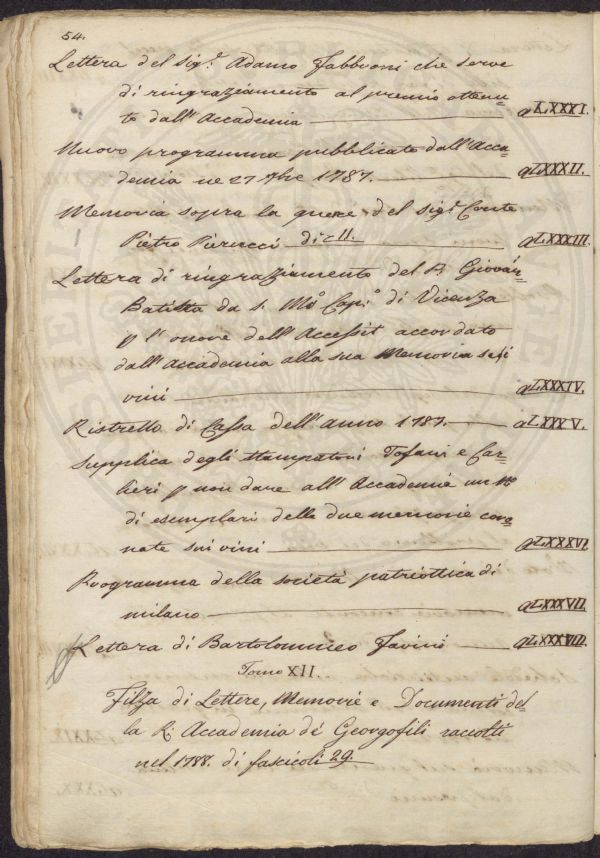 54.
Lettera del sig.r Adamo Fabbroni che serve
di ringraziamento al premio ottenu-
to dall'Accademia LXXXI.
Nuovo programma pubblicato dall'Acca-
demia ne 27 7bre 1787. LXXXII.
Memoria sopra la querce del sig.r Conte
Pietro Pierucci di c 11. LXXXIII.
Lettera di ringraziamento del P. Giovan
Batista da S. M.o Cap.o di Vicenza
p l'onore dell'Accessit accordato
dall'Accademia alla sua Memoria su i
vini LXXXIV.
Ristretto di Cassa dell'anno 1787. LXXXV.
Supplica degli stampatori Tofani e Car-
lieri p non dare all'Accademia un N.o
di esemplari delle due memorie coro-
nate sui vini LXXXVI.
Programma della società patriottica di
milano LXXXVII.
Lettera di Bartolommeo Favini LXXXVIII.
Tomo XII.
Filza di Lettere, Memorie e Documenti del-
la R. Accademia de' Georgofili raccolti
nel 1788. di fascicoli 29.